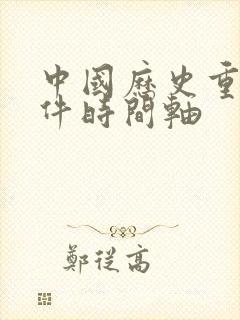 中國歷史重
件時間軸
鄭從高